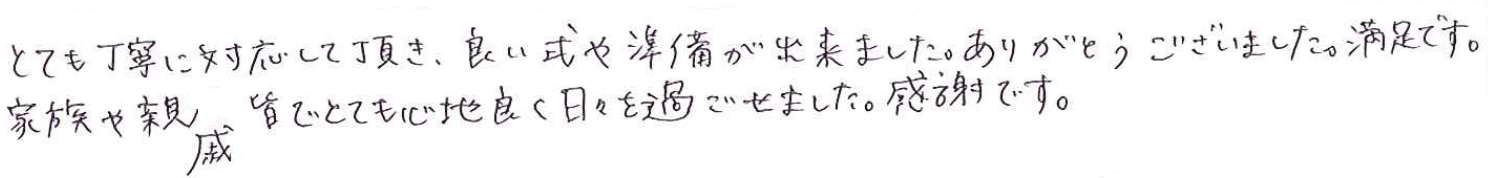 とても丁寧に対応して頂き、良い式や準備が出来ました。ありがとうございました。満足です。
家族や親戚皆でとても心地良く日々を過ごせました。感謝です。